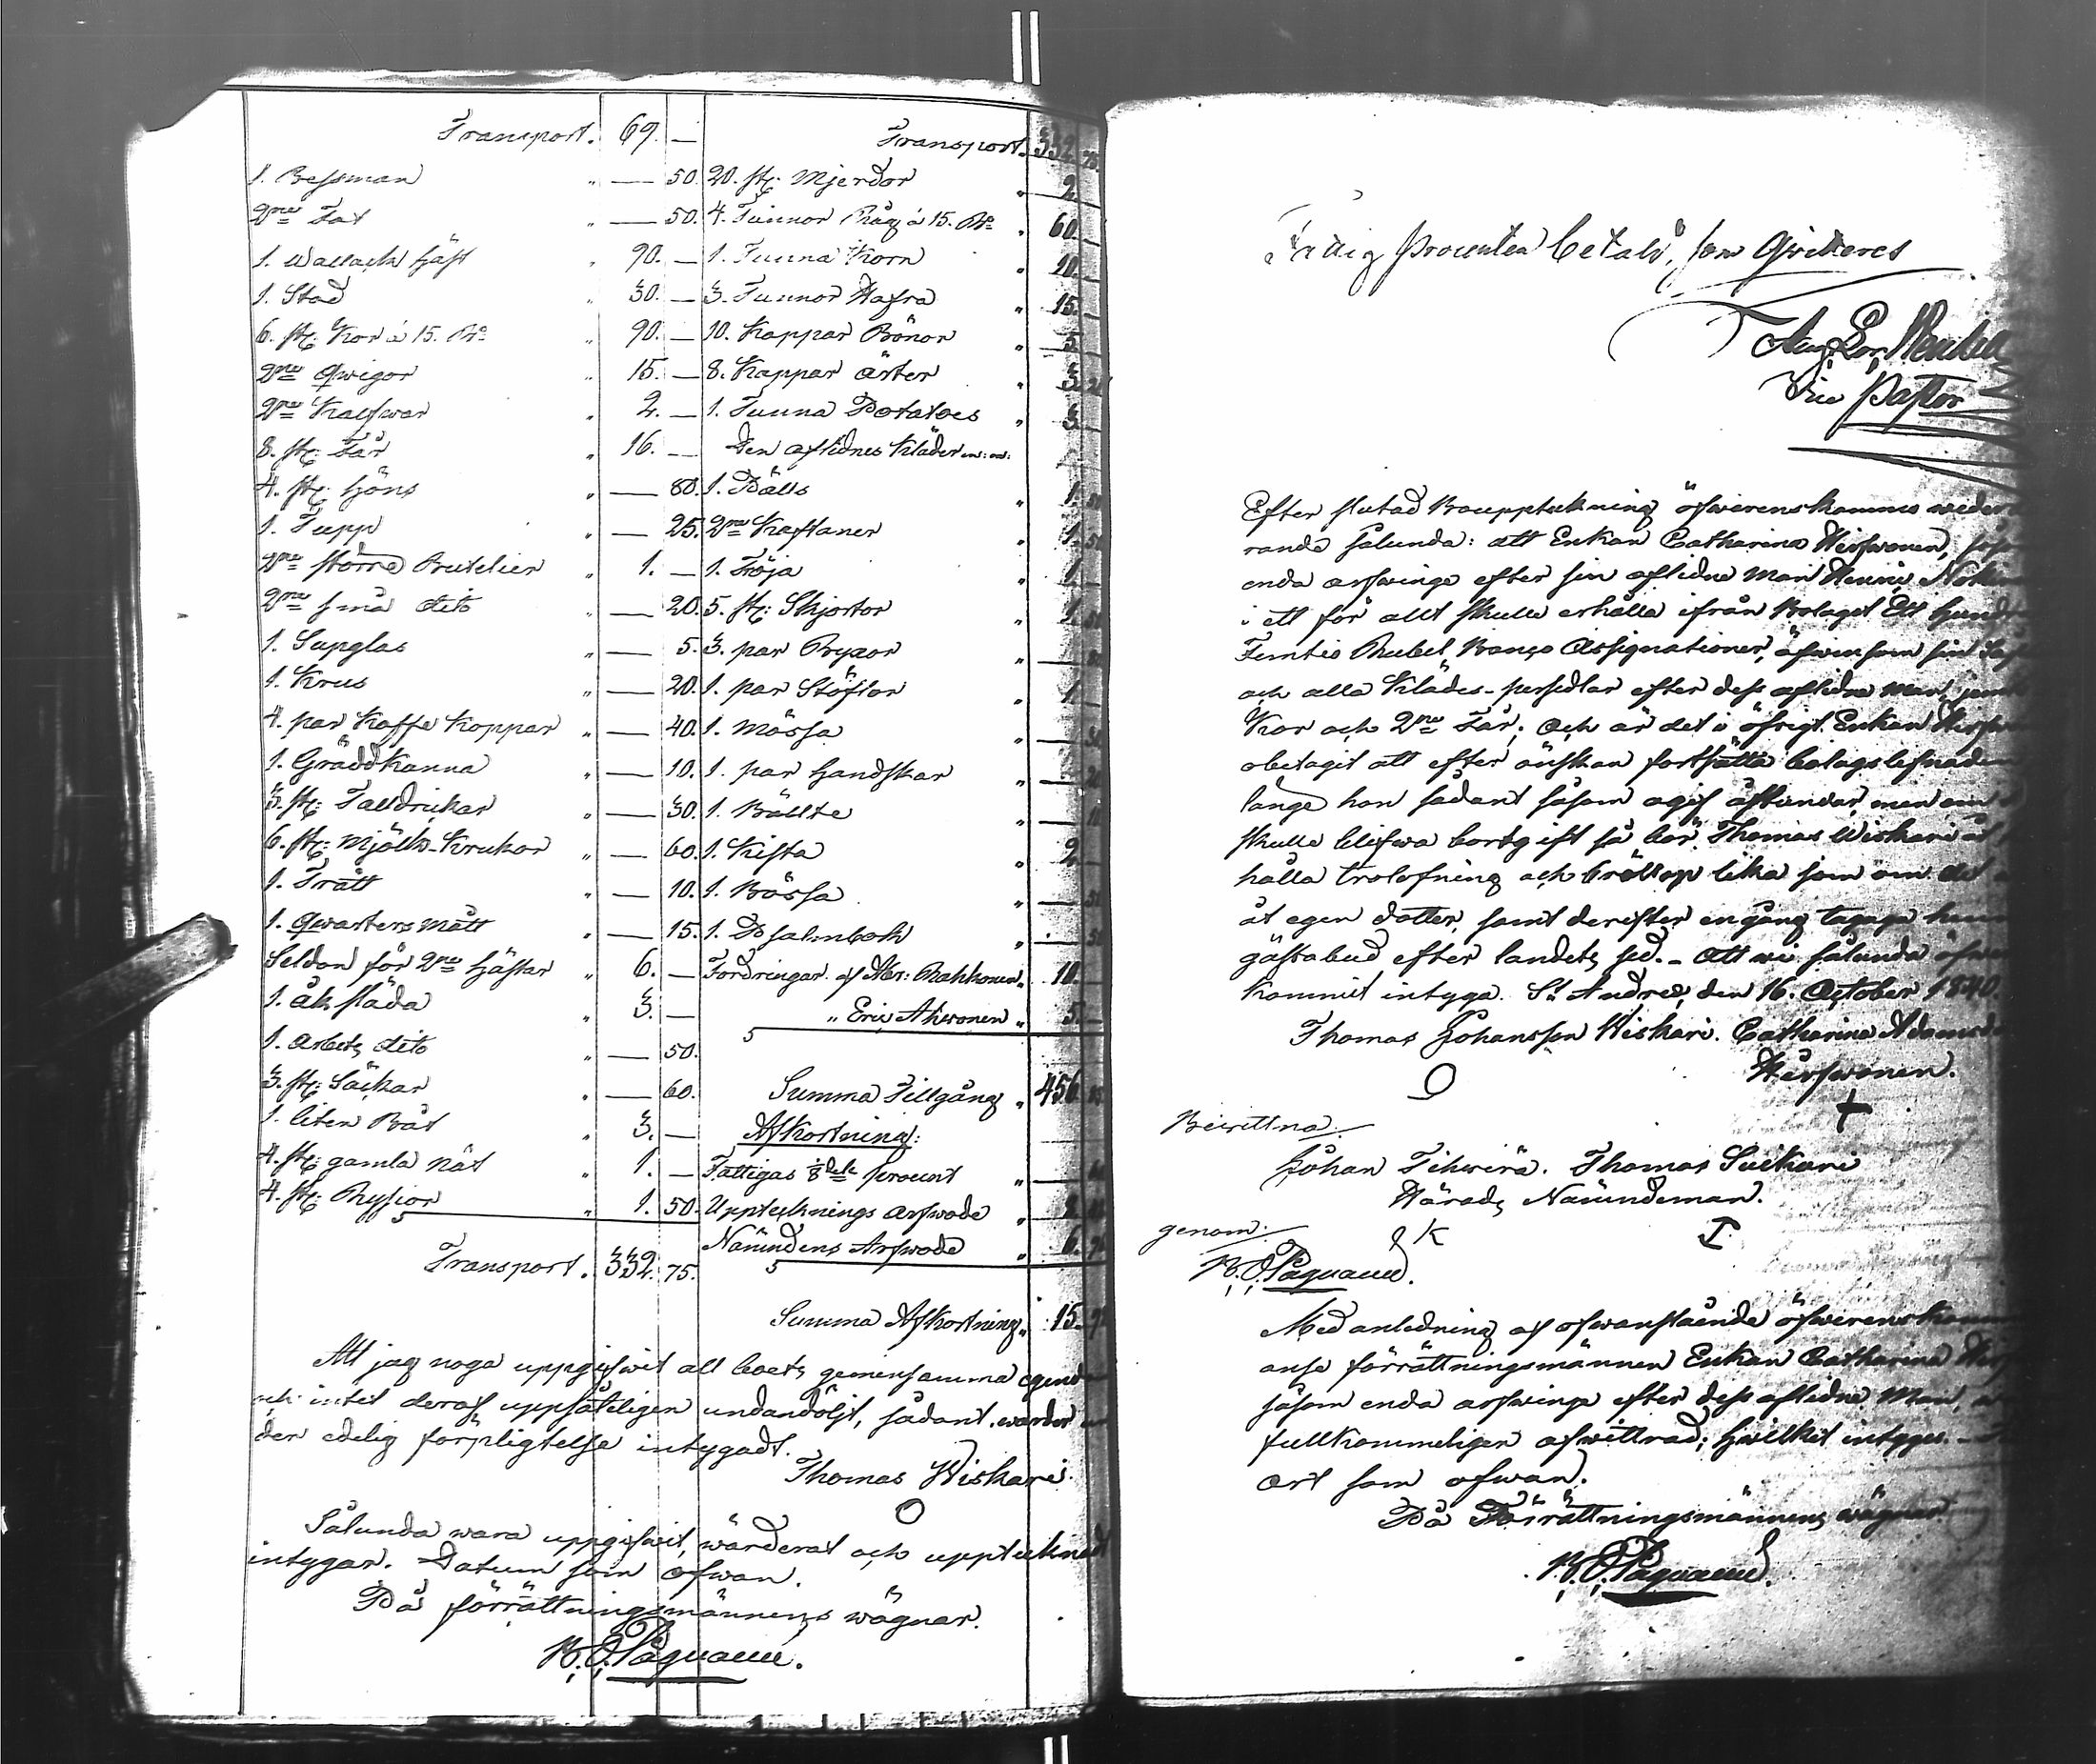 Transport. 69. —
1. Bessman " — 50.
2ne Fat " — 50.
1. Wallack häst " 90. —
1. Stod " 30. —
6. st: Kor à 15. Ro " 90. —
2ne Qwigor " 15. —
2ne Kalfwar " 2. —
8. st: Får " 16. —
4. st: höns " — 80.
1. Tupp " — 25.
2ne större Buteljer " 1. —
2ne små dito " — 20.
1. Supglas " — 5.
1. Krus " — 20.
4. par Kaffe Koppar " — 40.
1. Gräddkanna " — 10.
3. st: Talldrickar " — 30.
6. st: Mjölk-Krukor " — 60.
1. Tratt " — 10.
1. Qwarters Mått " — 15.
Seldon för 2ne hästar " 6. —
1. åk släda " 3. —
1. Arbets dito " — 50.
3. st: Säckar " — 60.
1. liten Båt " 3. —
4. st: gamla nät " 1. —
4. st: Ryssjor " 1. 50.
Transport. 332. 75.
Transport. 332 75.
20. st: Mjerdor " 2 —
4. Tunnor Råg à 15. Ro " 60. —
1. Tunna Korn " 10. —
3. Tunnor Hafra " 15. —
10. Kappar Bönor " 5. —
8. Kappar ärter " 3.
1. Tunna Potatoes " 3 —
Den aflidnes Kläder m: m:
1. Pälls " 1.
2ne Kaftaner " 1. 50
1. Tröja " 1. —
5. st: Skjortor " 1. 50
3. par Byxor " —
1. par Stöflor " 1 —
1. Mössa " —
1. par handskar " — 20
1. Bällte " —
1. Kista " 2 —
1. Bössa " — 50
1. Psalmbok " 50
Fordringar af Abr: Rahkonen " 10. —
" Eric Ahvonen " 5. —
Summa Tillgång " 456
Afkortning:
Fattigas 1/8dels procent "
Upptecknings arfwode "
Nämndens Arfwode " 6.
Summa Afkortning " 15.
Att jag noga uppgifwit all boets gemensamma egend
och intet deraf uppsåteligen undandöljt, sådant warder
der edelig förpligtelse intygadt.
Thomas Wiskari.
O
Sålunda wara uppgifwit, wärderat och upptecknad
intygar. Datum som ofwan.
På förrättningsmännens wägnar.
Fattig procenten betald, som Qwitteres
Vice Pastor
Efter slutad Bouppteckning öfwerenskommo weder
rande sålunda: att Enkan Catharina Hirfwonen, såsom
enda arfwinge efter sin aflidne man
i ett för allt skulle erhålla ifrån Bolaget Ett hundra
Femtio Rubel Banco Assignationer, äfwensom sin
och alla Klädes-persedlar efter dess aflidne man, jemte
Kor och 2ne Får; och är det i öfrigt Enkan
obetagit att efter önskan fortsätta bolagslefnaden
länge hon sådant såsom ogift åstundar, men om
skulle blifwa bortgift så bör Thomas Wiskari åt
hålla trolofning och bröllop lika som om det
åt egen dotter, samt derefter en gång taga
gästabud efter landets sed. – Att wi sålunda öfwerens
kommit intyga. St Andreæ, den 16. October 1840.
Thomas Johansson Wiskari. Catharina Adamsd
O Hirfwonen.
+
Bewittna:
Johan Tihverä. Thomas Suikari
Härads Nämndeman.
genom:
Med anledning af ofwanstående öfwerenskom
anse förrättningsmännen Enkan Catharina
såsom enda arfwinge efter dess aflidne Man,
fullkommeligen afwittrad; hwilket intygas. –
ort som ofwan.
På Förrättningsmännens wägnar